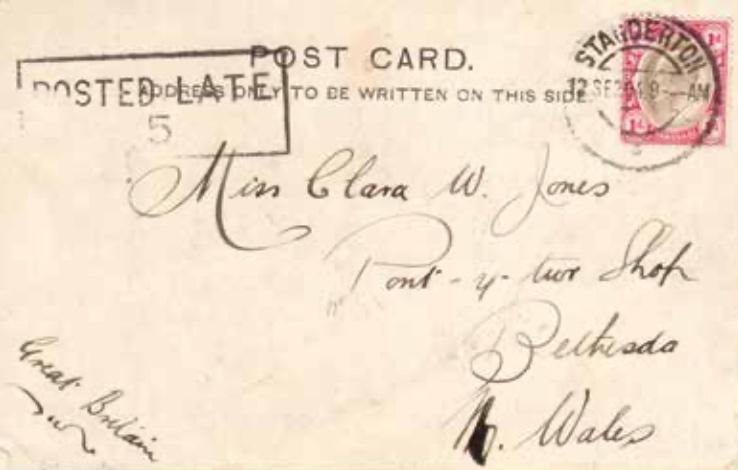 POST CARD.
ADDRESS ONLY TO BE WRITTEN ON THIS SIDE.
POSTED LATE
5
STANDERTON
12 SE AM
1d
1d
Miss Clara W. Jones
Pont-y-twr Shop
Bethesda
N. Wales
Great Britain